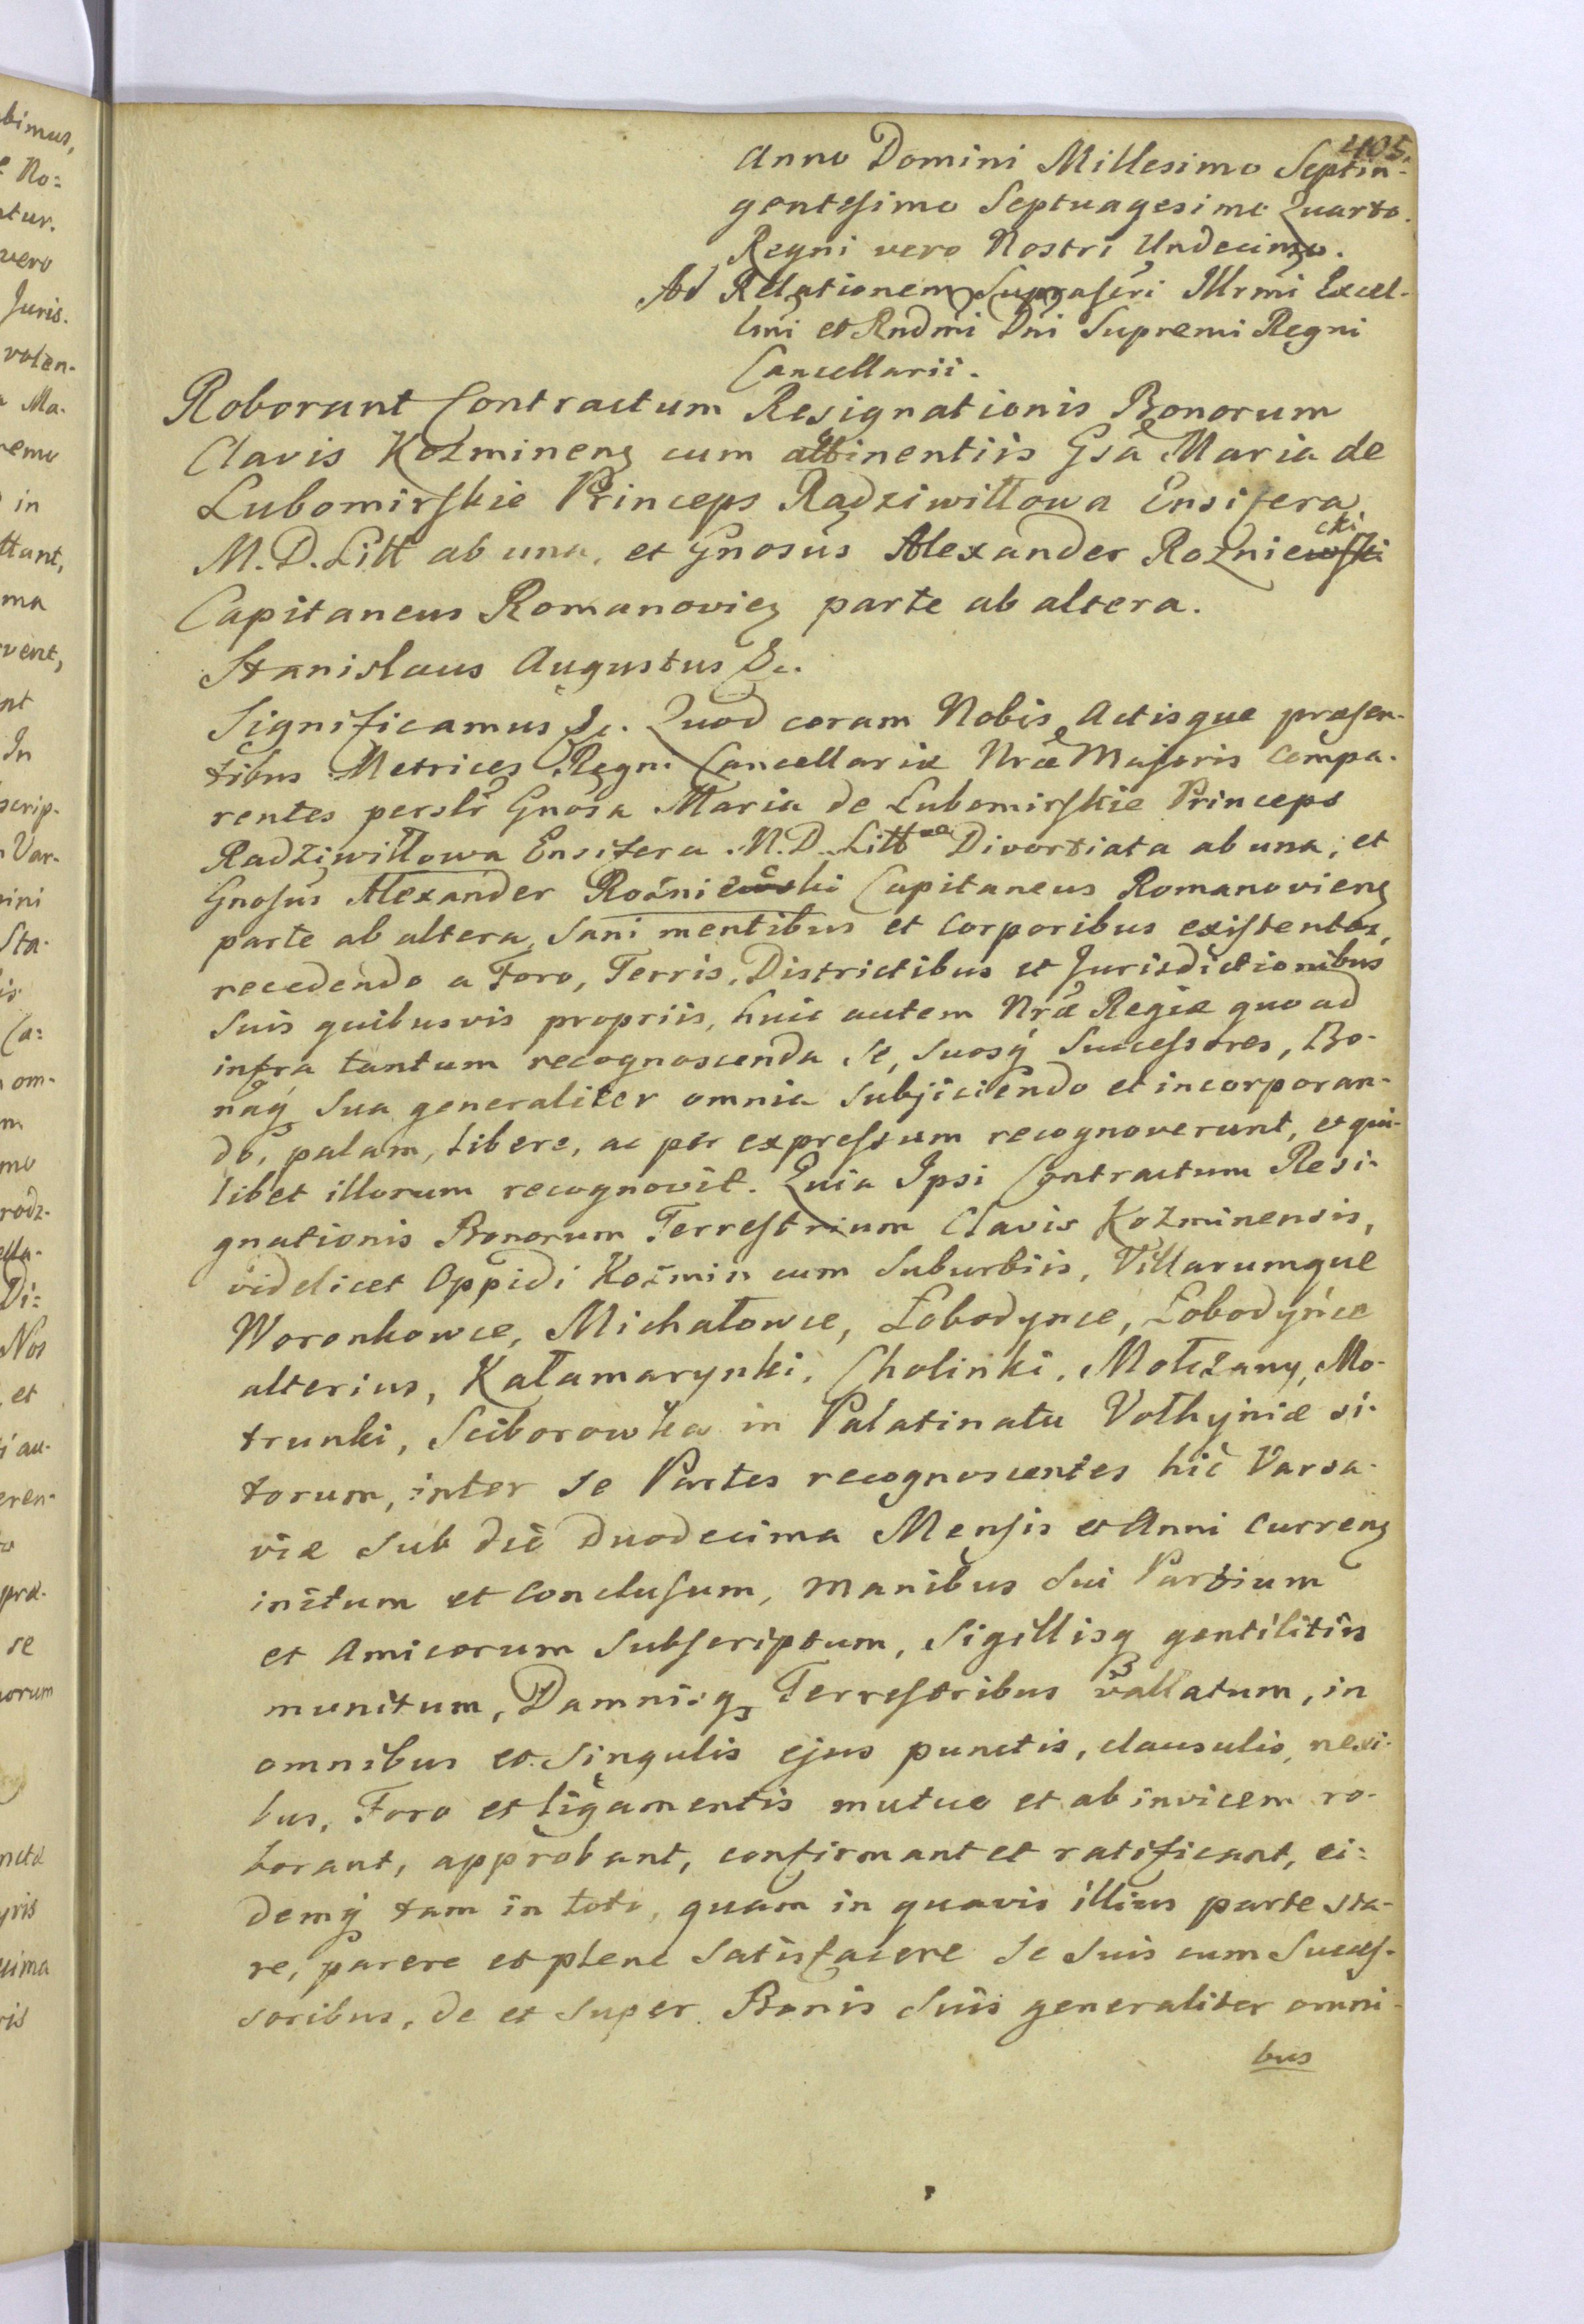 405.
Anno Domini Millesimo Septin-
gentesimo Septuagesimo Quarto.
Regni vero Nostri Undecimo.
Ad Relationem Suprascri Illrmi Excel-
lmi et Rndmi Dni Supremi Regni
Cancellarii.
Roborant Contractum Resignationis Bonorum
Clavis Kozminens cum attinentiis Gsa Maria de
Lubomirskie Princeps Radziwiłłowa Ensifera
M. D. Litt ab una, et Gnosus Alexander Rozniecki
Capitaneus Romanovien parte ab altera.
Stanislaus Augustus &c.
Significamus &c. Quod coram Nobis Actisque praesen-
tibus Metrices Regni Cancellariæ Nræ Majoris compa-
rentes persltr Gnosa Maria de Lubomirskie Princeps
Radziwiłłowa Ensifera M. D. Littæ Divortiata ab una, et
Gnosus Alexander Rozniecki Capitaneus Romanoviens
parte ab altera, sani mentibus et corporibus existentes,
recedendo a Foro, Terris, Districtibus et Jurisdictionibus
suis quibusvis propriis, huic autem Nræ Regiæ quoad
infra tantum recognoscenda se, suosq Successores, Bo-
naq sua generaliter omnia subjiciendo et incorporan-
do, palam, libere, ac per expressum recognoverunt, et qui-
libet illorum recognovit. Quia Ipsi Contractum Resi-
gnationis Bonorum Terrestrium Clavis Kozminensis,
videlicet Oppidi Kozmin cum Suburbiis, Villarumque
Woronkowce, Michałowce, Łobodynce, Łobodyńce
alterius, Kałamarynki, Cholinki, Mołczany, Mo-
trunki, Sciborowka in Palatinatu Volhyniæ si-
torum, inter se Partes recognoscentes hic Varsa-
viæ sub die Duodecima Mensis et Anni currens
initum et conclusum, manibus sui Partium
et Amicorum subscriptum, Sigillisq gentilitiis
munitum, Damnisq Terrestribus vallatum, in
omnibus et singulis ejus punctis, clausulis, nexi-
bus, Foro et ligamentis mutuo et ab invicem ro-
borant, approbant, confirmant et ratificant, ei-
demq tam in toto, quam in quavis illius parte sta-
re, parere et plene satisfacere se suis cum Succes-
soribus, de et super Bonis suis generaliter omni-
bus